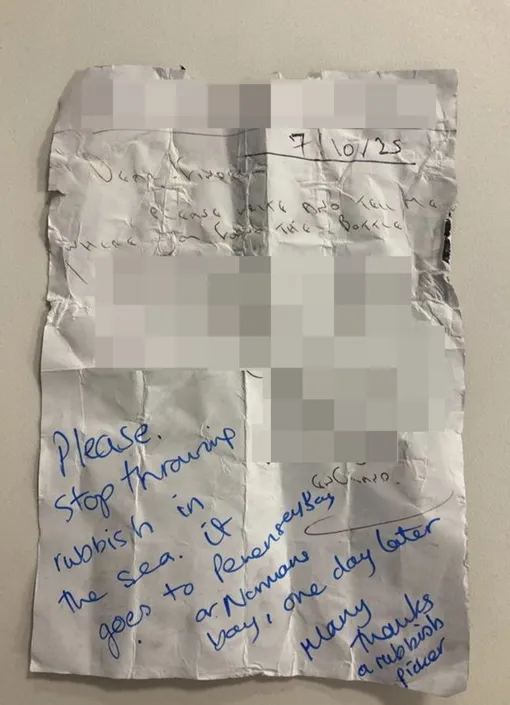 7/10/25
Dear Finder
PLEASE WRITE AND TELL ME
WHERE YOU FOUND THIS BOTTLE
ENGLAND.
Please.
stop throwing
rubbish in
the sea. it
goes to PevenseyBay
or Normans
bay, one day later
Many
thanks
a rubbish
picker